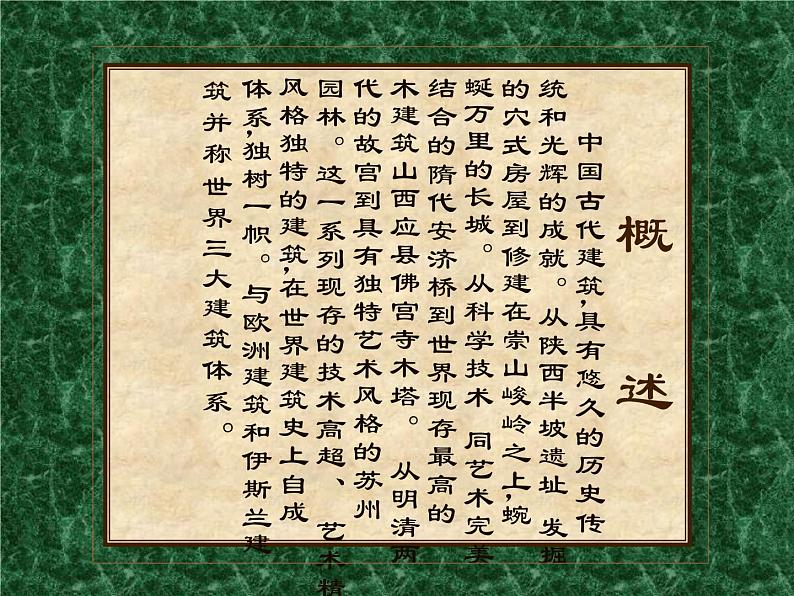 概述
中国古代建筑，具有悠久的历史传
统和光辉的成就。从陕西半坡遗址 发掘
的穴式房屋到修建在崇山峻岭之上，蜿
蜒万里的长城。从科学技术 同艺术完美
结合的隋代安济桥到世界现存最高的
木建筑山西应县佛宫寺木塔。 从明清两
代的故宫到具有独特艺术风格的苏州
园林。这一系列现存的技术高超、 艺术精
风格独特的建筑，在世界建筑史上自成
体系，独树一帜。与欧洲建筑和伊斯兰建
筑并称世界三大建筑体系。